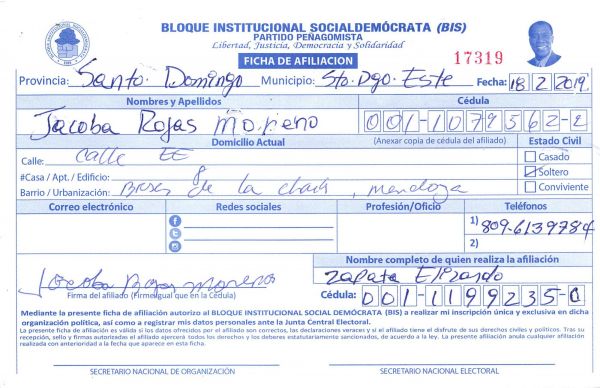 BLOQUE INSTITUCIONAL SOCIALDEMÓCRATA (BIS)
PARTIDO PEÑAGOMISTA
Libertad, Justicia, Democracia y Solidaridad
FICHA DE AFILIACION
17319
Provincia: Santo. Domingo Municipio: Sto. Dgo. Este Fecha: 18 2 2019
Nombres y Apellidos Cédula
Jacoba Rojas Moreno 001-1079562-2
Domicilio Actual (Anexar copia de cédula del afiliado) Estado Civil
Calle: Calle EE Casado
#Casa / Apt. / Edificio: 8 Soltero
Barrio / Urbanización: de la, mendoza Conviviente
Correo electrónico Redes sociales Profesión/Oficio Teléfonos
1) 809-6139784
2)
Nombre completo de quien realiza la afiliación
Jacoba Rojas Moreno Zapata
Firma del afiliado (Firme igual que en la Cédula) Cédula: 001-1199235-0
Mediante la presente ficha de afiliación autorizo al BLOQUE INSTITUCIONAL SOCIAL DEMÓCRATA (BIS) a realizar mi inscripción única y exclusiva en dicha
organización política, así como a registrar mis datos personales ante la Junta Central Electoral.
La presente ficha de afiliación es válida si los datos ofrecidos por el afiliado son correctos, las declaraciones veraces y si el afiliado tiene el disfrute de sus derechos civiles y políticos. Tras su
recepción, sello y firmas autorizadas el afiliado ejercerá todos los derechos y los deberes estatutariamente sancionados, de acuerdo a la ley. La presente afiliación anula cualquier afiliación
realizada con anterioridad a la fecha que aparece en esta ficha.
SECRETARIO NACIONAL DE ORGANIZACIÓN SECRETARIO NACIONAL ELECTORAL